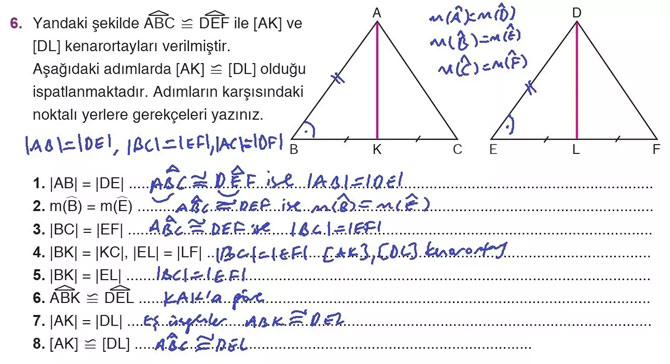 6. Yandaki şekilde ABC ≅ DEF ile [AK] ve
[DL] kenarortayları verilmiştir.
Aşağıdaki adımlarda [AK] ≅ [DL] olduğu
ispatlanmaktadır. Adımların karşısındaki
noktalı yerlere gerekçeleri yazınız.
|AB|=|DE|, |BC|=|EF|, |AC|=|DF|
A
B
K
C
m(Â)=m(D̂)
m(B̂)=m(Ê)
m(Ĉ)=m(F̂)
D
E
L
F
1. |AB| = |DE| ABC ≅ DEF ise |AB|=|DE|
2. m(B̂) = m(Ê) ABC ≅ DEF ise m(B̂)=m(Ê)
3. |BC| = |EF| ABC ≅ DEF ise |BC|=|EF|
4. |BK| = |KC|, |EL| = |LF| |BC|=|EF| [AK], [DL] kenarortay
5. |BK| = |EL| |BC|=|EF|
6. ABK ≅ DEL KAK'a göre
7. |AK| = |DL| Eş üçgenler ABK ≅ DEL
8. [AK] ≅ [DL] ABC ≅ DEL